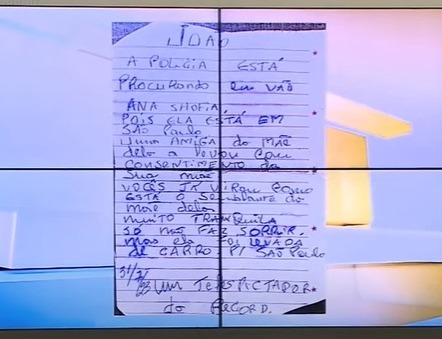 A POLICIA ESTÁ
PROCURANDO EM VÃO
ANA SHOFIA,
POIS ELA ESTÁ EM
SÃO PAULO
UMA AMIGA da MÃE
dela a levou com
CONSENTIMENTO da
Sua mãe
VOCÊS JÁ VIRAM COMO
ESTÁ O SEMBLANTE da
mãe dela
MUITO TRANQUILA
SÓ NÃO FAZ SORRIR.
Mas ela FOI LEVADA
de CARRO P/ SÃO PAULO
UM TELESPICTADOR
da RECORD.